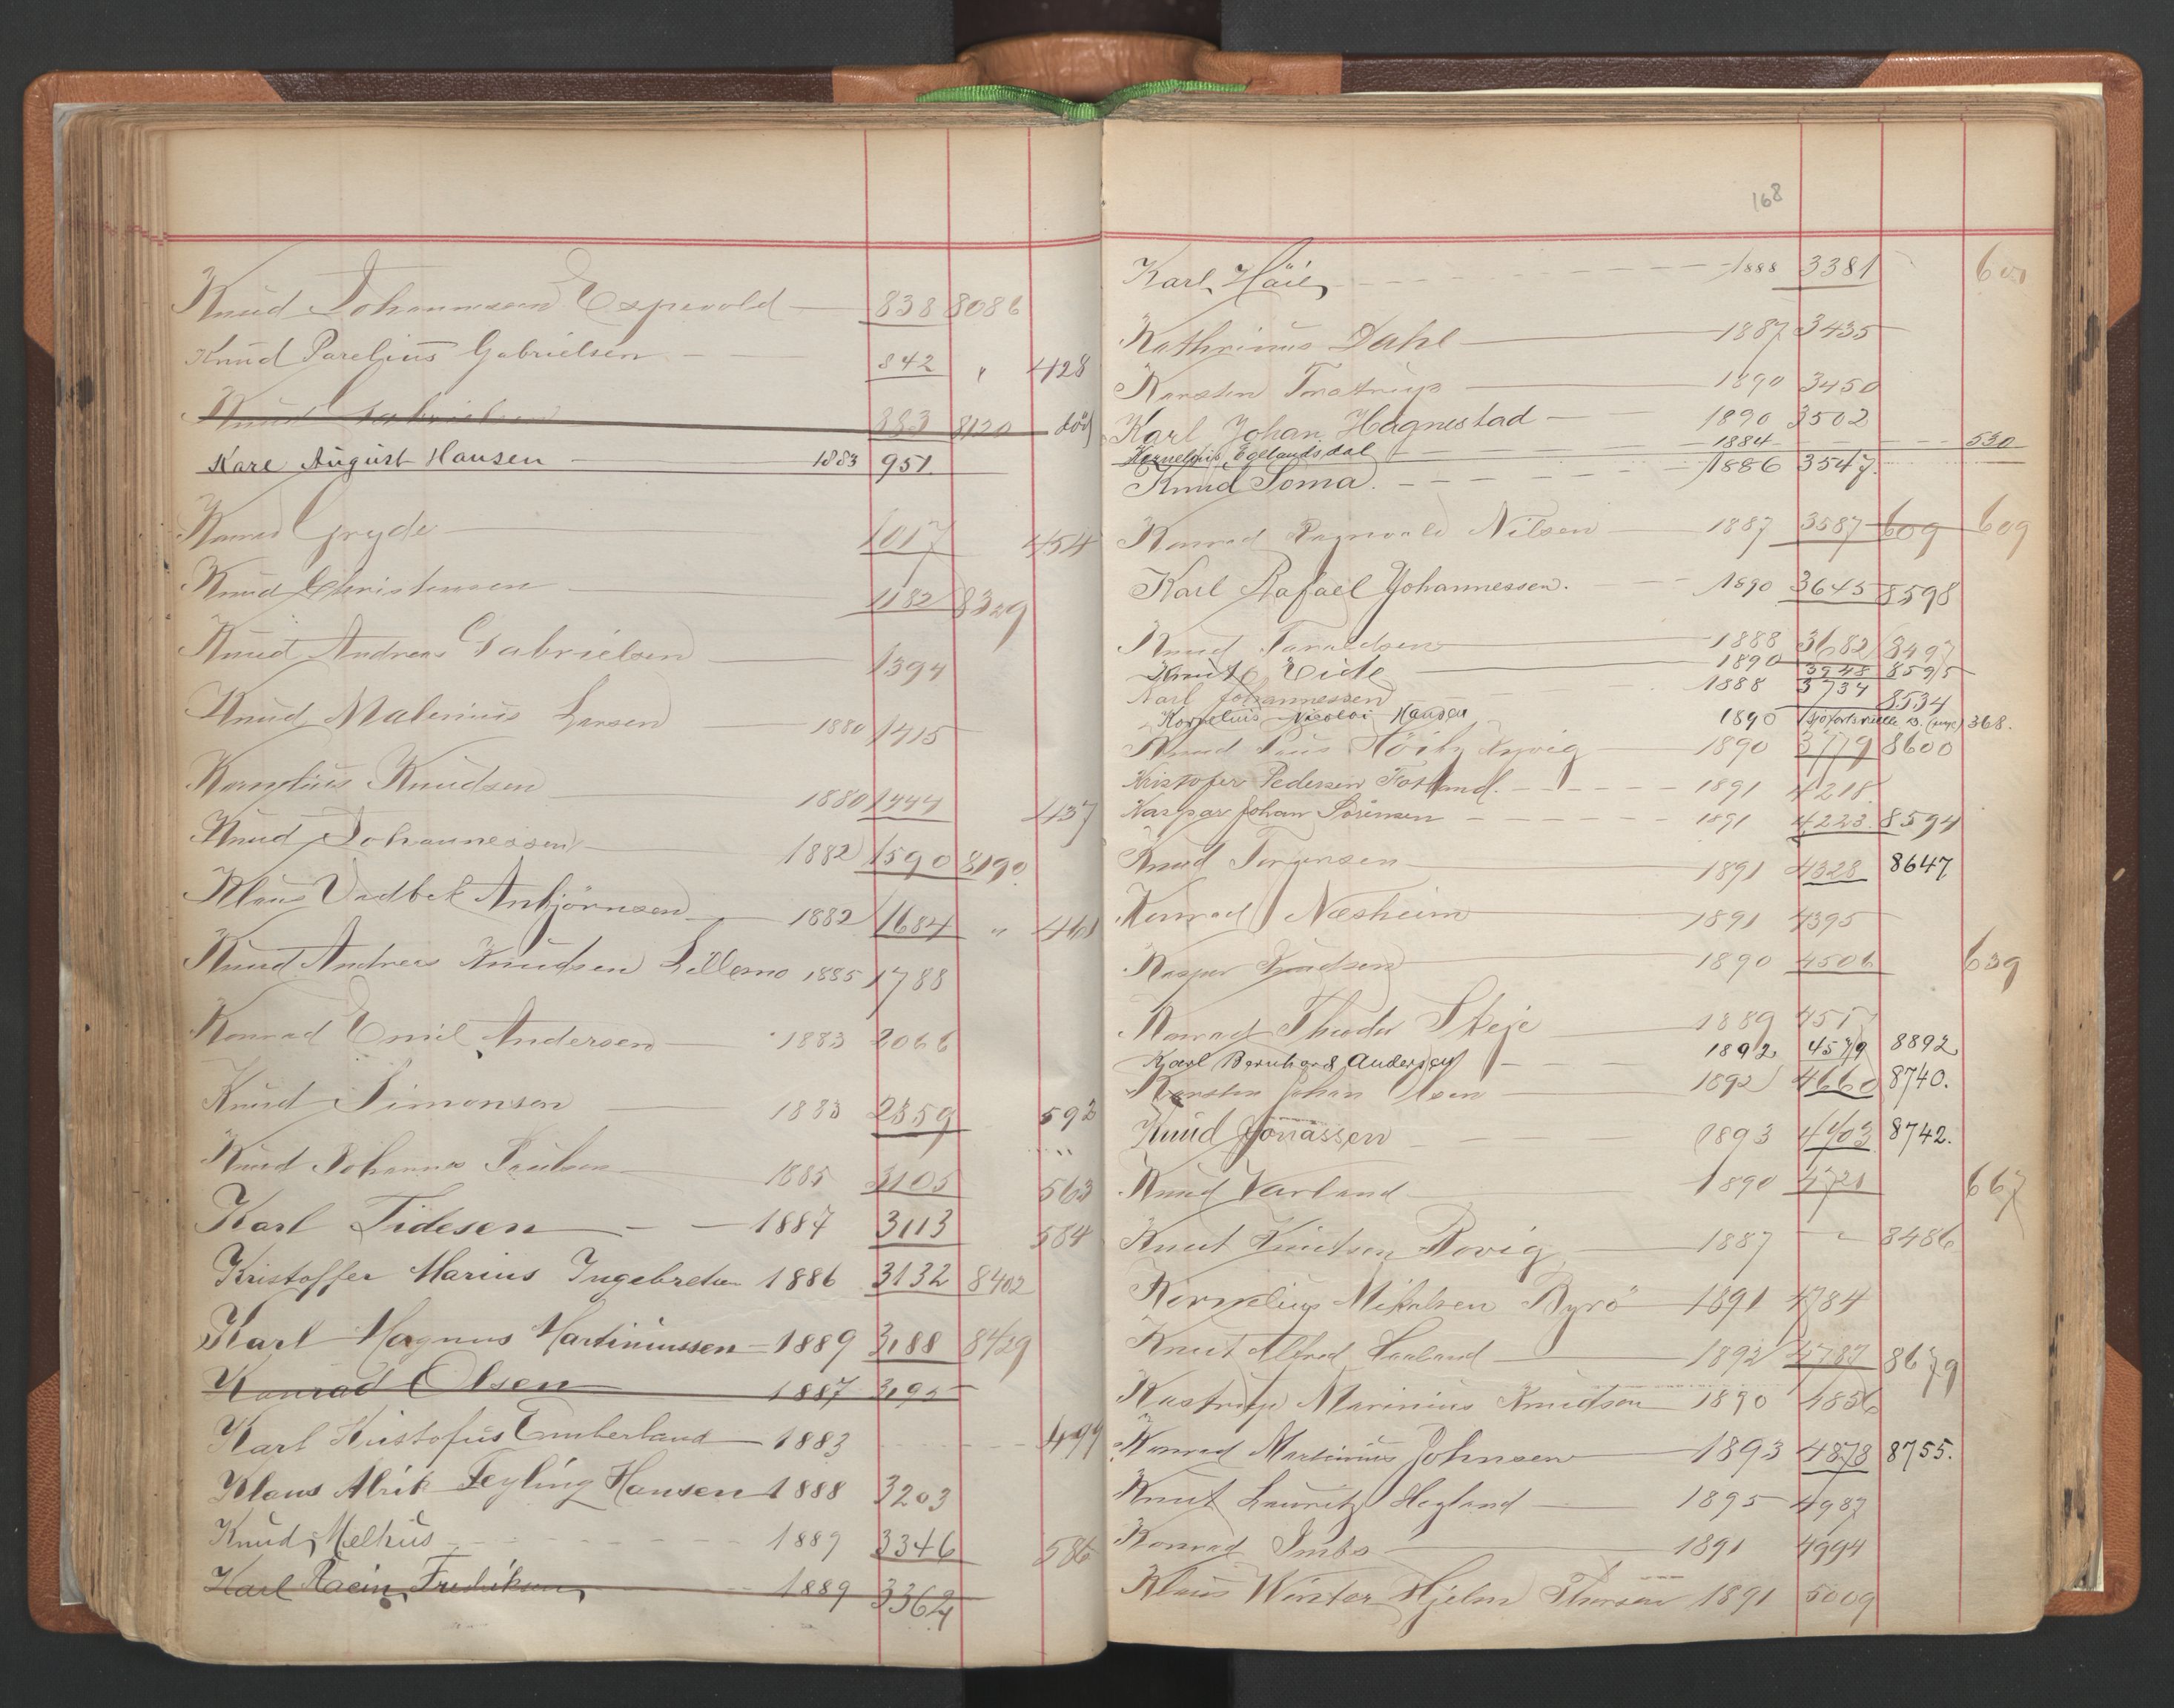 Knud Johannesen Espevold 838 8086
Knud Parelius Gabrielsen 842 " 428
Knud Gabrielsen 883 8120 död
Karl August Hansen 1883 951
Konrad Gryde 1017 454
Knud Christensen 1182 8329
Knud Andreas Gabrielsen 1394
Knud Malenius Larsen 1880 1415
Kornelius Knudsen 1880 1444 437
Knud Johannessen 1882 1590 8190
Klaus Vedbek Anbjörnsen 1882 1684 " 461
Knud Andreas Knudsen Lillemo 1885 1788
Konrad Emil Andersen 1883 2066
Knud Simonsen 1883 2359 592
Knud Johannes Paulsen 1885 3105 563
Karl Tidesen 1887 3113 584
Kristoffer Marius Ingebretsen 1886 3132 8402
Karl Magnus Martiniussen 1889 3188 8429
Konrad Olsen 1887 3195
Karl Kristofus Emberland 1883 499
Klaus Alrik Feyling Hansen 1888 3203
Knud Melhus 1889 3346 586
Karl Rein Fredriksen 1889 3364
168
Karl Häil 1888 3381 600
Kathrinus Dahl 1887 3435
Karsten Trostrup 1890 3450
Karl Johan Hagnestad 1890 3502
Kornelius Egelandsdal 1884 530
Knud Soma 1886 3547
Konrad Ragnvald Nilsen 1887 3587 609 609
Karl Rafael Johannessen 1890 3645 8598
Knud Taraldsen 1888 3682 8497
Knut Eide 1890 3948 8595
Karl Johannessen 1888 3734 8534
Kornelius Nicolai Hansen 1890 368.
Knud 1890 3779 8600
Kristofer Pedersen Fotland 1891 4218
Kaspar Johan Sörensen 1891 4223 8594
Knud Tergensen 1891 4328 8647
Konrad Næsheim 1891 4395
Kasper Knudsen 1890 4506 639
Konrad Theodor Skeje 1889 451
Karl Bernhard Andersen 1892 4579 8892
Karsten Johan Olsen 1892 4660 8740.
Knud Jonassen 1893 4703 8742.
Knud Varland 1890 4721 667
Knut Knutsen Rovig 1887 " 8486
Kornelius Mikalsen Byrö 1891 4784
Knut Alfred Laaland 1892 4787 8679
Kastrup Marinius Knudsen 1890 4856
Konrad Martinius Johnsen 1893 4878 8755.
Knut Lauritz Hegland 1895 4987
Konrad Imbs 1891 4994
Klaus Winter Hjelm Thorsen 1891 5009